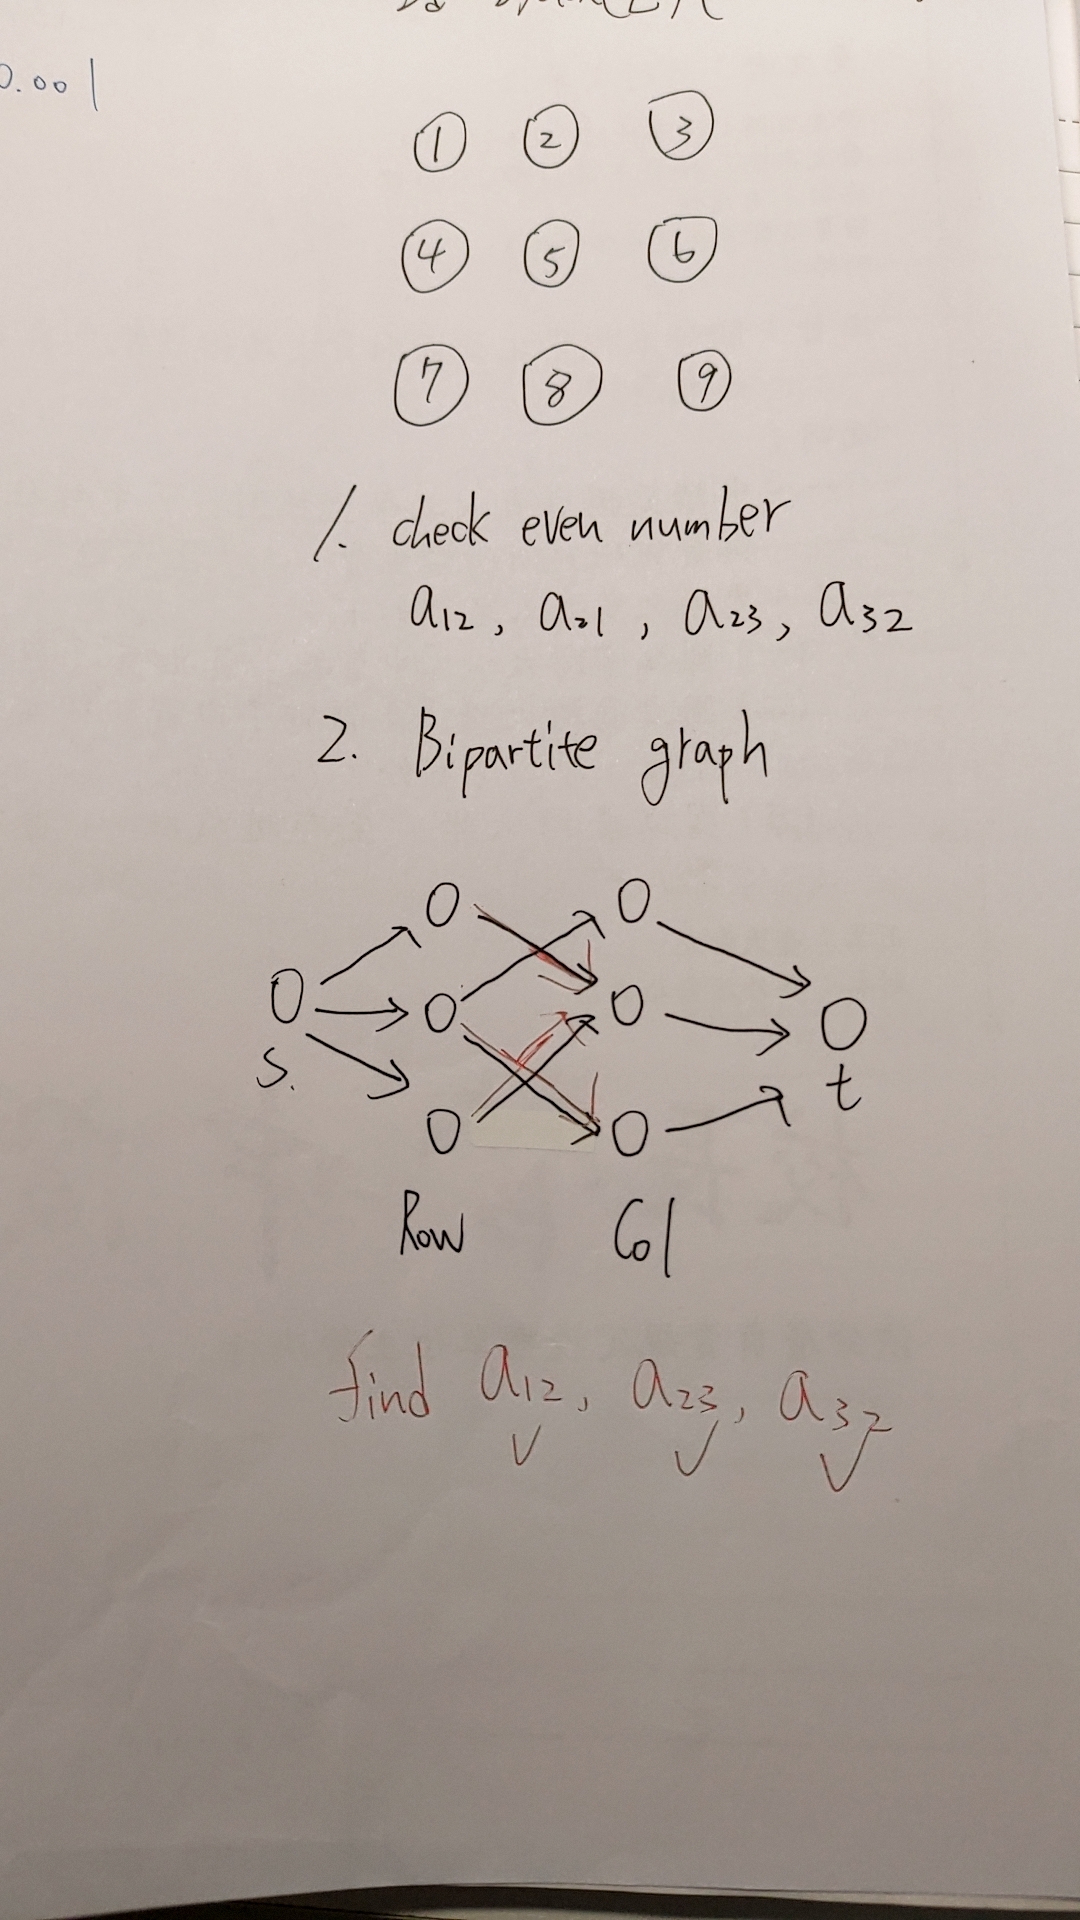 0.001
1 2 3
4 5 6
7 8 9
1. check even number
a12, a21, a23, a32
2. Bipartite graph
s.
t
Row Col
find a12, a23, a32